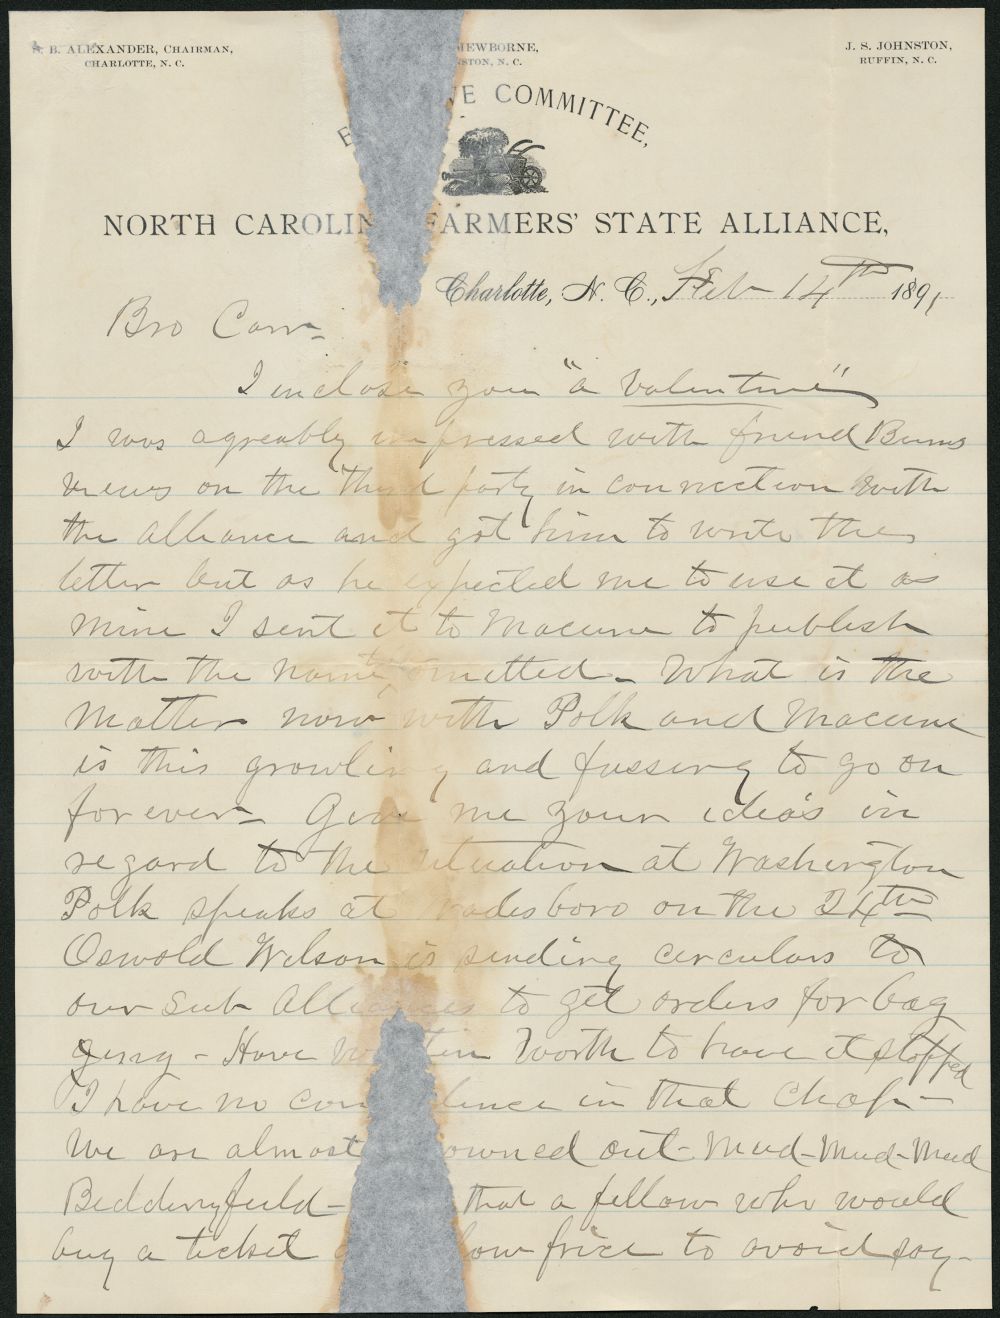 S. B. ALEXANDER, CHAIRMAN,
CHARLOTTE, N. C.
NEWBORNE,
NSTON, N. C.
J. S. JOHNSTON,
RUFFIN, N. C.
E VE COMMITTEE,
NORTH CAROLIN FARMERS' STATE ALLIANCE,
Charlotte, N. C., Feb 14th 1891
Bro Carr-
I inclose you "a Valentine"
I was agreably impressed with friend Burns
views on the third party in connection with
the alliance and got him to write the
letter but as he expected me to use it as
mine I sent it to Macune to publish
with the name omitted - What is the
matter now with Polk and Macune
is this growling and fussing to go on
forever - Give me your idea's in
regard to the situation at Washington
Polk speaks at Wadesboro on the 24th
Oswold Wilson is sending circulars to
our Sub Alliances to get orders for bag
ging - Have written Worth to have it stopped
I have no con dence in that chap -
We are almost owned out - Mud - Mud - Mud
Beddingfield - that a fellow who would
buy a ticket low price to avoid pay-